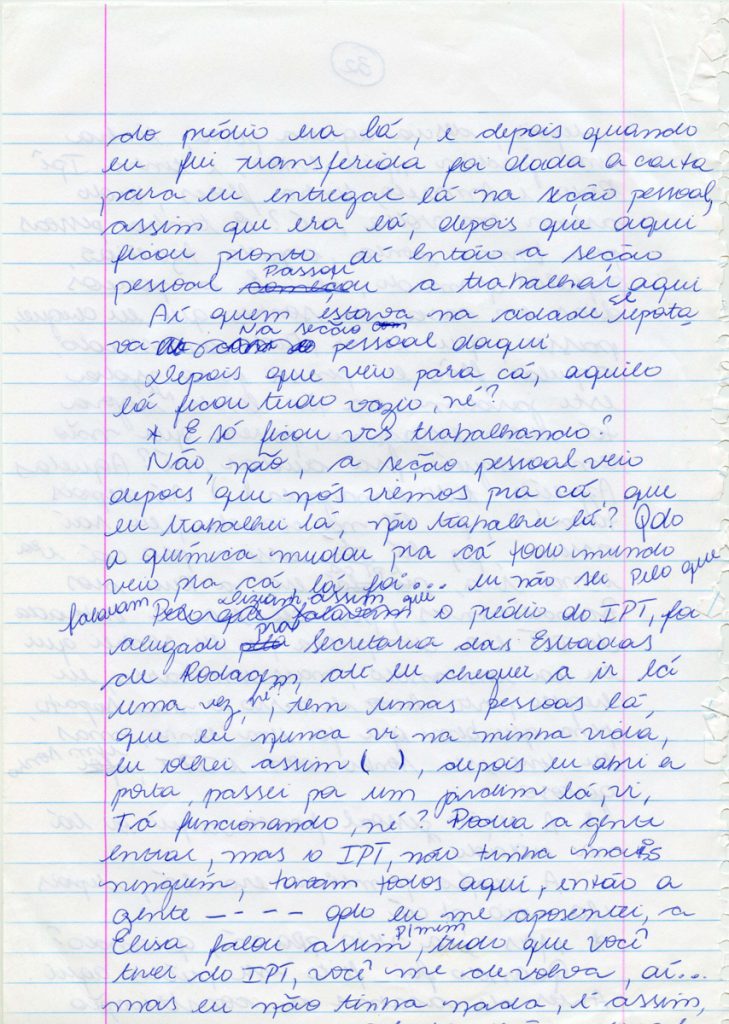 32
do prédio era lá, e depois quando
eu fui transferida foi dada a carta
para eu entregar lá na seção pessoal,
assim que era lá, depois que aqui
ficou pronto aí então a seção
pessoal começou Passou a trabalhar aqui
Aí quem estava na cidade se reporta
va na seção com pessoal daqui
Depois que veio para cá, aquilo
lá ficou tudo vazio, né?
* E só ficou vcs trabalhando?
Não, não, a seção pessoal veio
depois que nós viemos pra cá, que
eu trabalhei lá, não trabalhei lá? Qdo
a química mudou pra cá todo mundo
veio pra cá lá foi... eu não sei pelo que
falavam Diziam assim que o prédio do IPT, foi
alugado pra Secretaria das Estradas
de Rodagem, até eu cheguei a ir lá
uma vez, né, tem umas pessoas lá,
que eu nunca vi na minha vida,
eu olhei assim ( ), depois eu abri a
porta, passei por um jardim lá, vi,
Tá funcionando, né? a gente
entrar, mas o IPT, não tinha mais
ninguém, todos aqui, então a
gente - - - - qdo eu me aposentei, a
Elisa falou assim p/mim, tudo que você
tiver do IPT, você me devolva, aí...
mas eu não tinha nada, é assim,